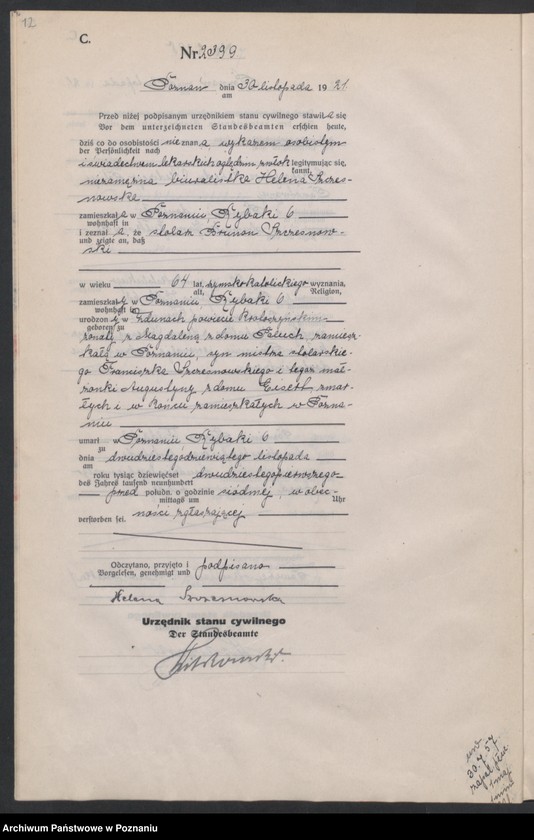 12
C.
Nr. 2399
Poznań dnia 30 listopada 19 21
am
Przed niżej podpisanym urzędnikiem stanu cywilnego stawił a się
Vor dem unterzeichneten Standesbeamten erschien heute,
dziś co do osobistości nieznana, wykazem osobistym
der Persönlichkeit nach
i świadectwem lekarskich oględzin zwłok legitymując się,
kannt,
niezamężna biuralistka Helena Szczes-
nowska
zamieszkał a w Poznaniu Rybaki 6
wohnhaft in
i zeznał a, że stolarz Brunon Szczesnow-
und zeigte an, daß
ski
w wieku 64 lat, rzymsko katolickiego wyznania,
alt, Religion,
zamieszkał y w Poznaniu Rybaki 6
wohnhaft in
urodzon y w Zdunach powiecie Krotoszyńskim
geboren zu
żonaty z Magdaleną z domu Paluch, zamiesz-
kałą w Poznaniu, syn mistrza stolarskie-
go Franciszka Szczesnowskiego i tegoż mał-
żonki Augustyny z domu zmar-
łych i w końcu zamieszkałych w Pozna-
niu
umarł w Poznaniu Rybaki 6
zu
dnia dwudziestego dziewiątego listopada
am
roku tysiąc dziewięćset dwudziestego pierwszego
des Jahres tausend neunhundert
przed połudn. o godzinie siódmej, w obec-
mittags um Uhr
ności zgłaszającej
verstorben sei.
Odczytano, przyjęto i podpisano
Vorgelesen, genehmigt und
Helena Szczesnowska
Urzędnik stanu cywilnego
Der Standesbeamte
30.7.57.
Archiwum Państwowe w Poznaniu